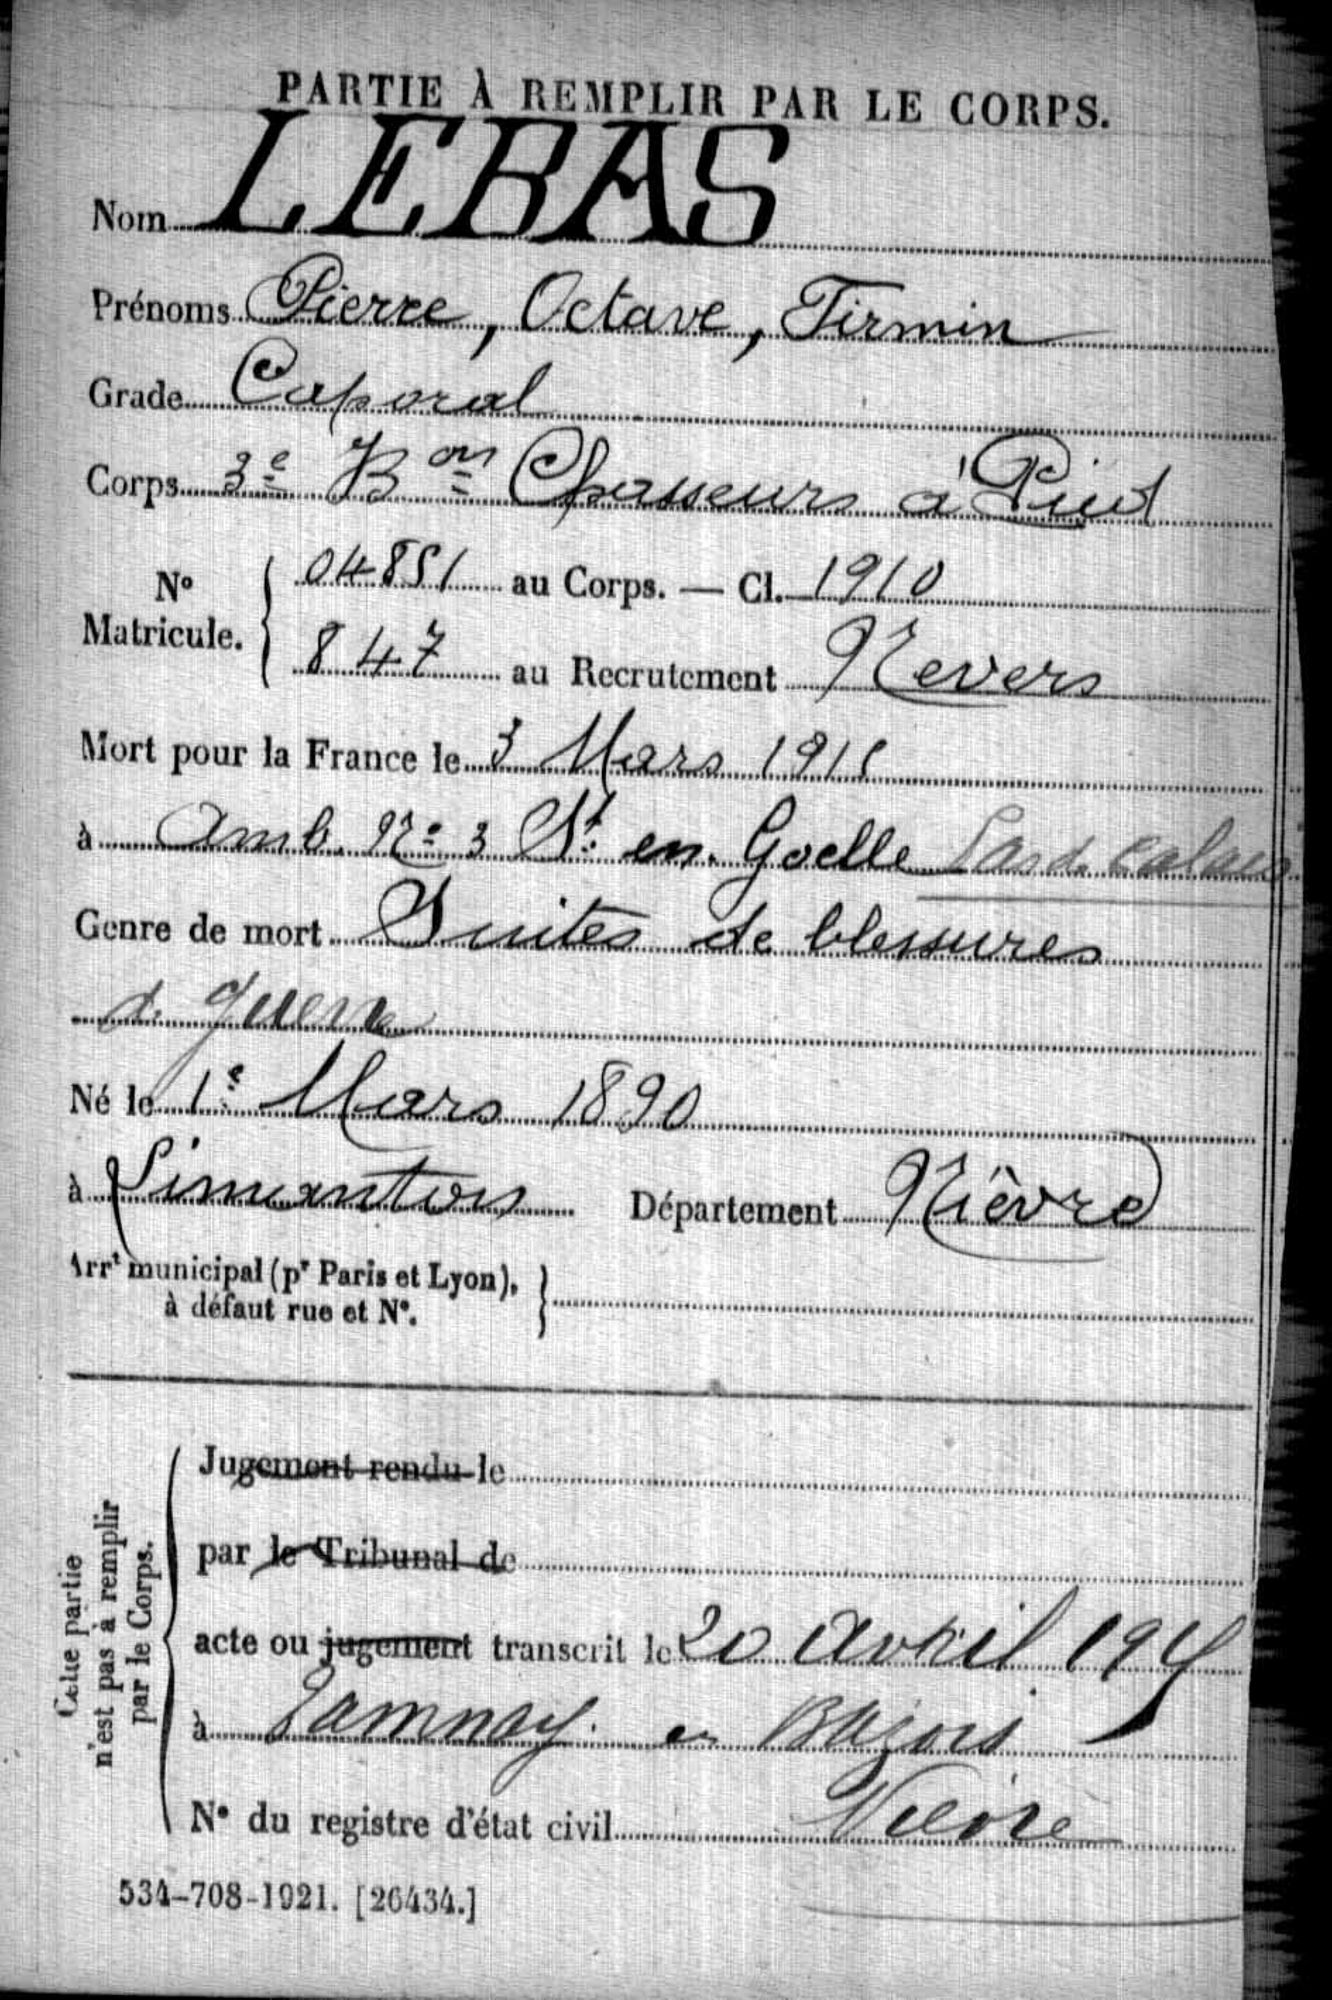 PARTIE À REMPLIR PAR LE CORPS.
Nom LEBAS
Prénoms Pierre, Octave, Firmin
Grade Caporal
Corps 3e Bon Chasseurs à Pied
No Matricule. 04851 au Corps. — Cl. 1910
847 au Recrutement Nevers
Mort pour la France le 3 Mars 1915
à Amb. No 3 St. en Goelle Pas de Calais
Genre de mort Suites de blessures
de guerre
Né le 1e Mars 1890
à Limanton Département Nièvre
Arrt municipal (pr Paris et Lyon),
à défaut rue et No.
Cette partie
n'est pas à remplir
par le Corps.
Jugement rendu le
par le Tribunal de
acte ou jugement transcrit le 20 avril 1915
à Tamnay en Bazois
No du registre d'état civil Nièvre
534-708-1921. [26434.]